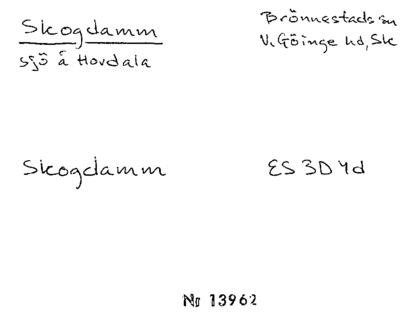 Skogdamm
sjö å Hovdala
Brönnestads sn
V. Göinge hd, Sk
Skogdamm
ES 3D 4d
No 13962